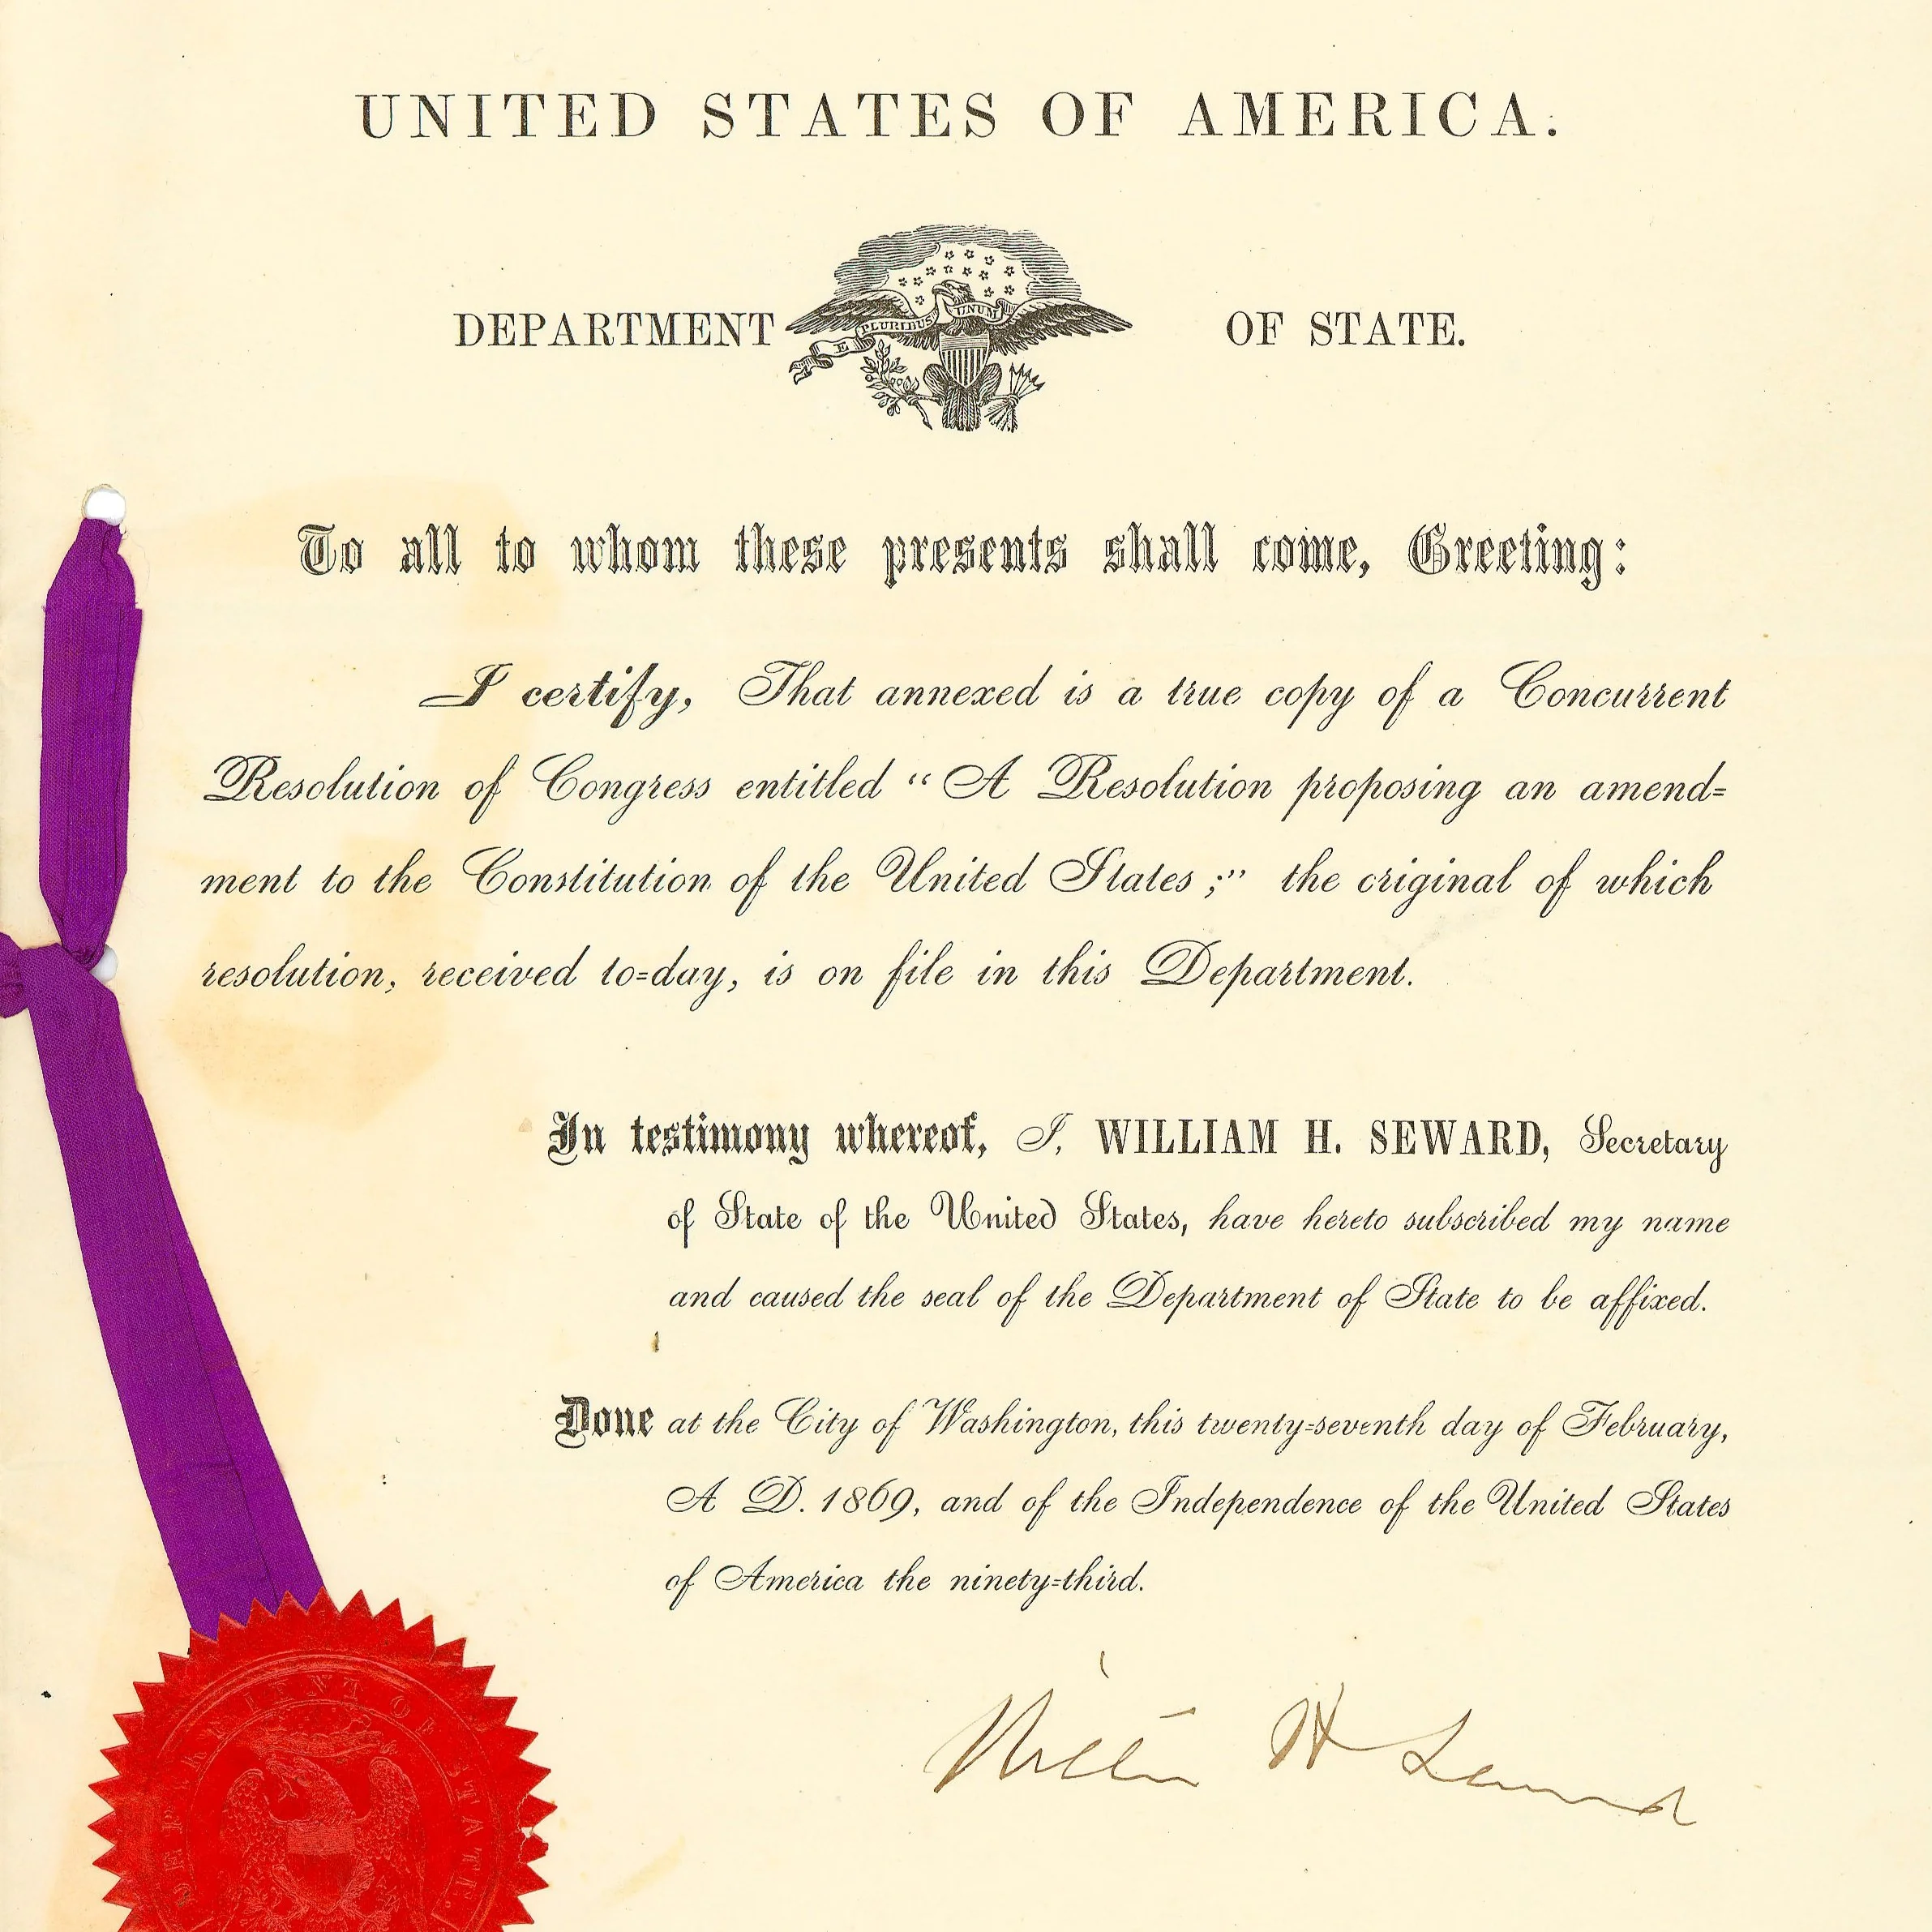 UNITED STATES OF AMERICA.
DEPARTMENT OF STATE.
E PLURIBUS UNUM
To all to whom these presents shall come, Greeting:
I certify, That annexed is a true copy of a Concurrent
Resolution of Congress entitled “A Resolution proposing an amend=
ment to the Constitution of the United States;” the original of which
resolution, received to=day, is on file in this Department.
In testimony whereof, I, WILLIAM H. SEWARD, Secretary
of State of the United States, have hereto subscribed my name
and caused the seal of the Department of State to be affixed.
Done at the City of Washington, this twenty=seventh day of February,
A D. 1869, and of the Independence of the United States
of America the ninety=third.
William H Seward
DEPARTMENT OF STATE.